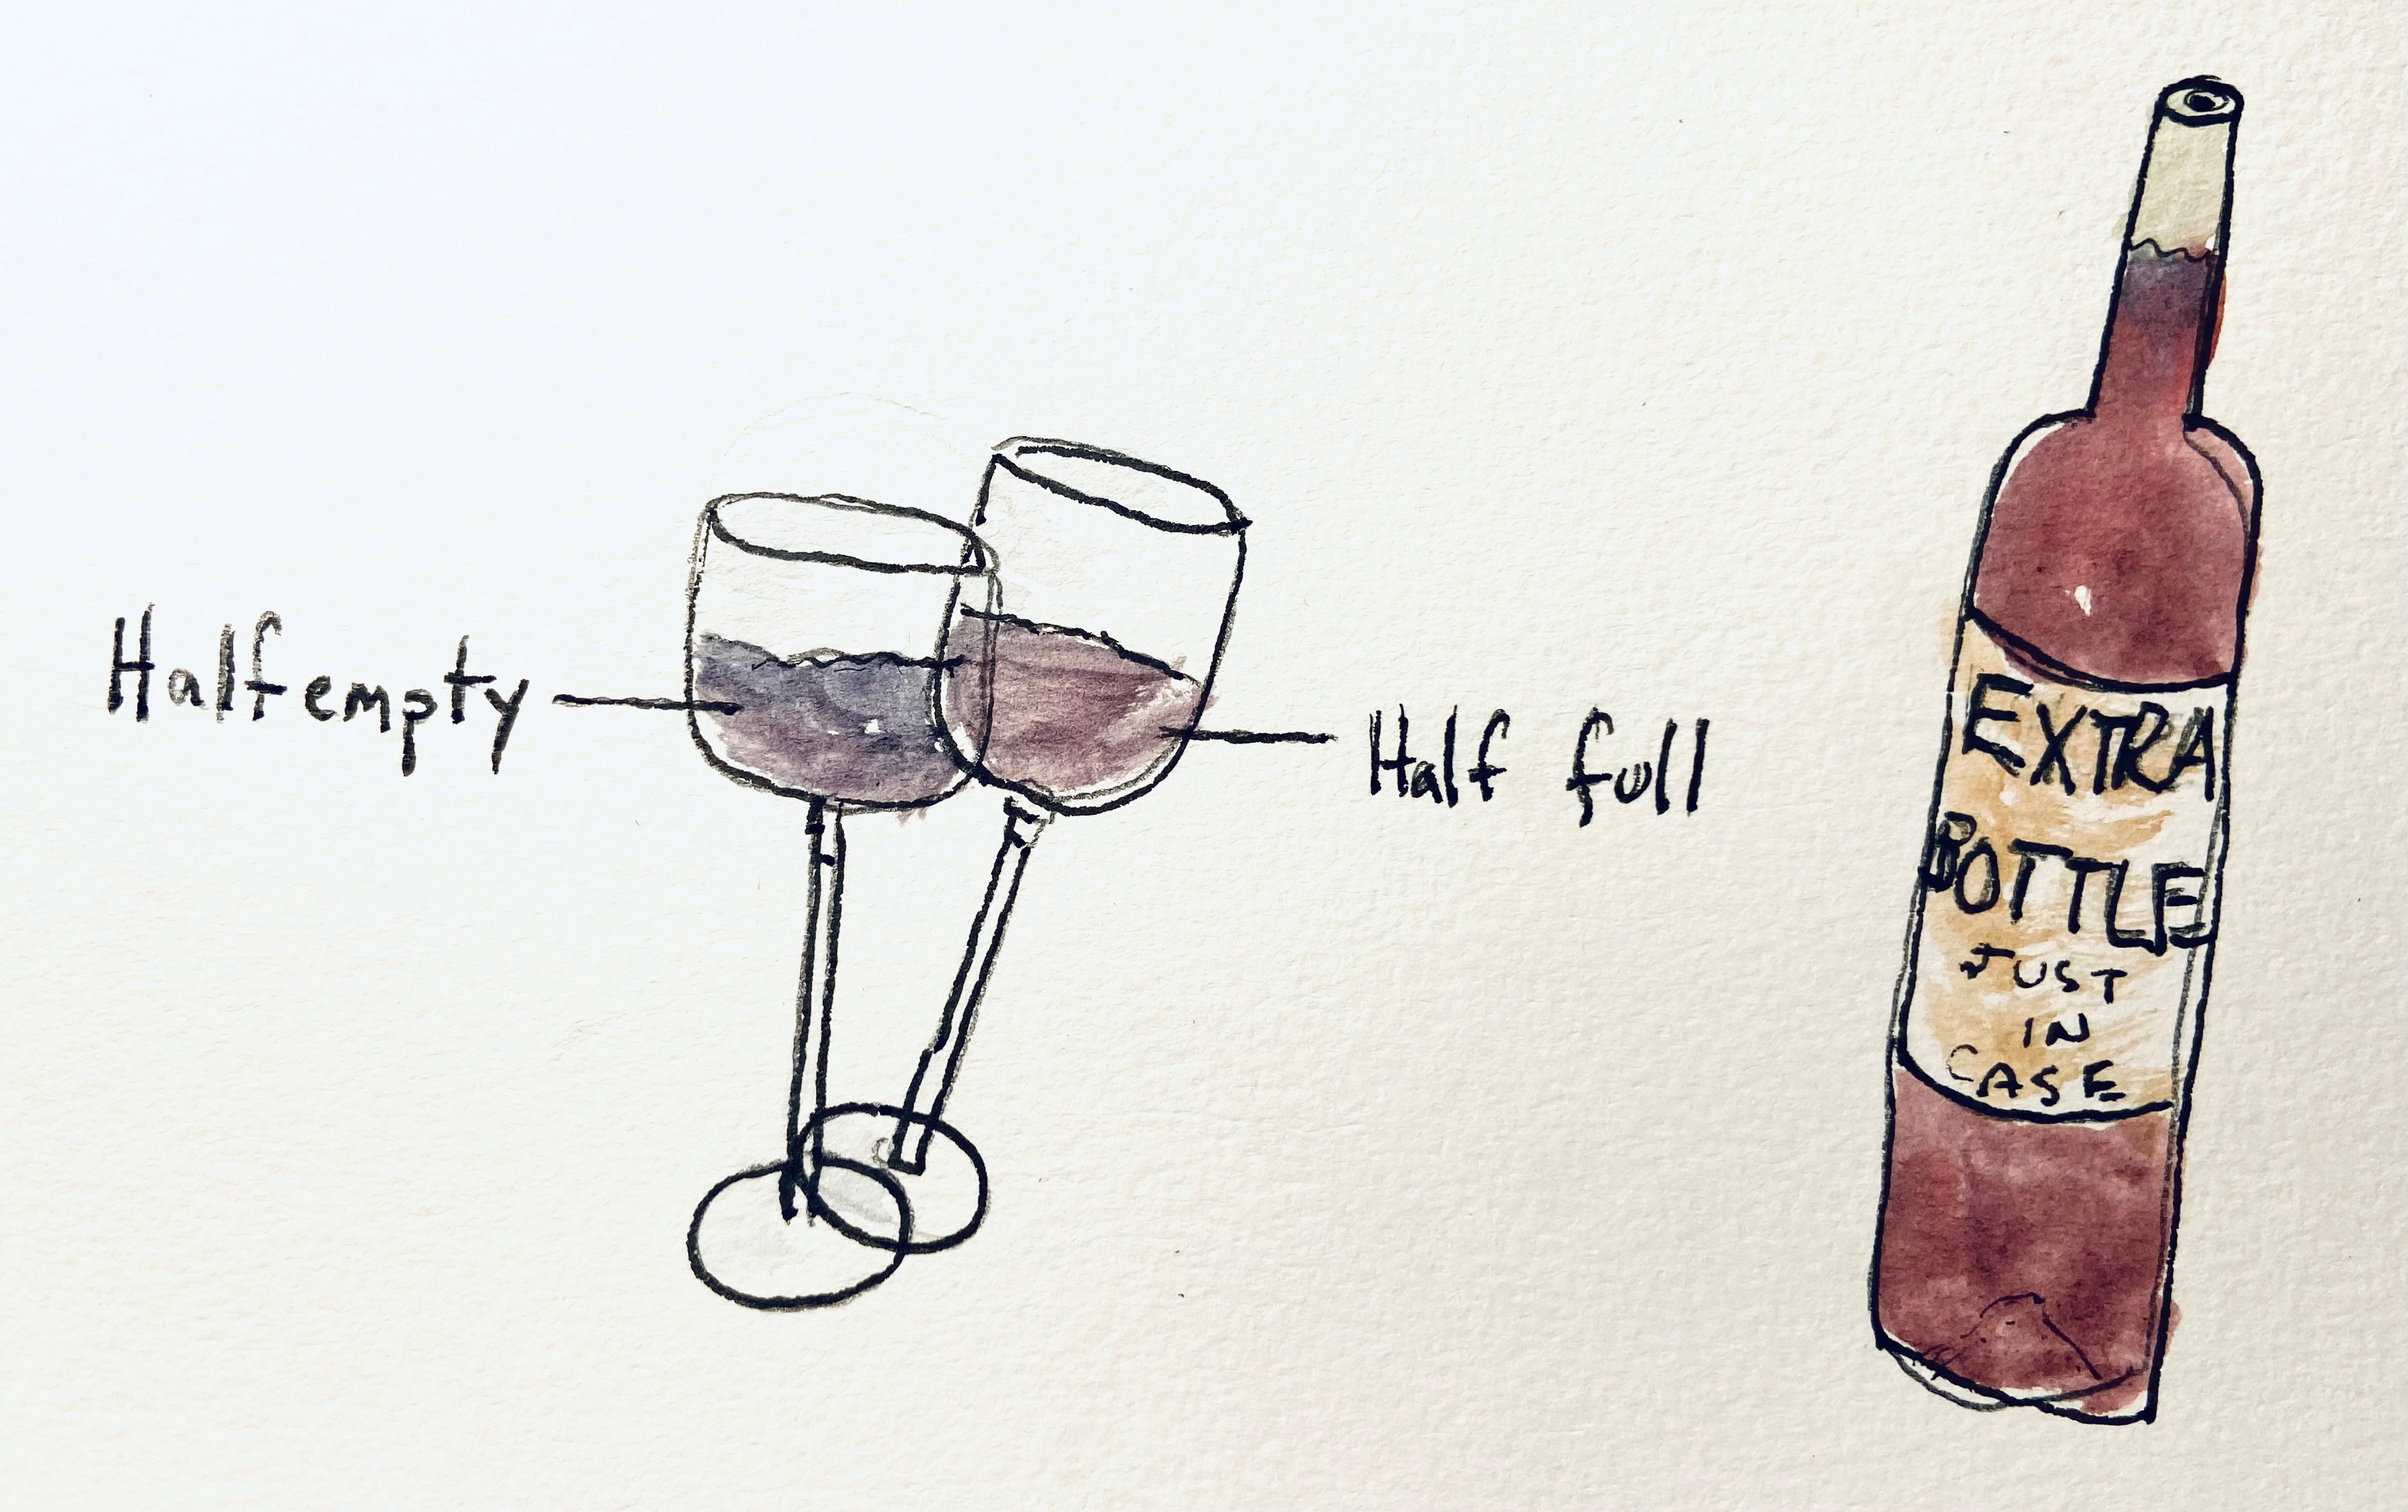 Half empty
Half full
EXTRA
BOTTLE
JUST
IN
CASE